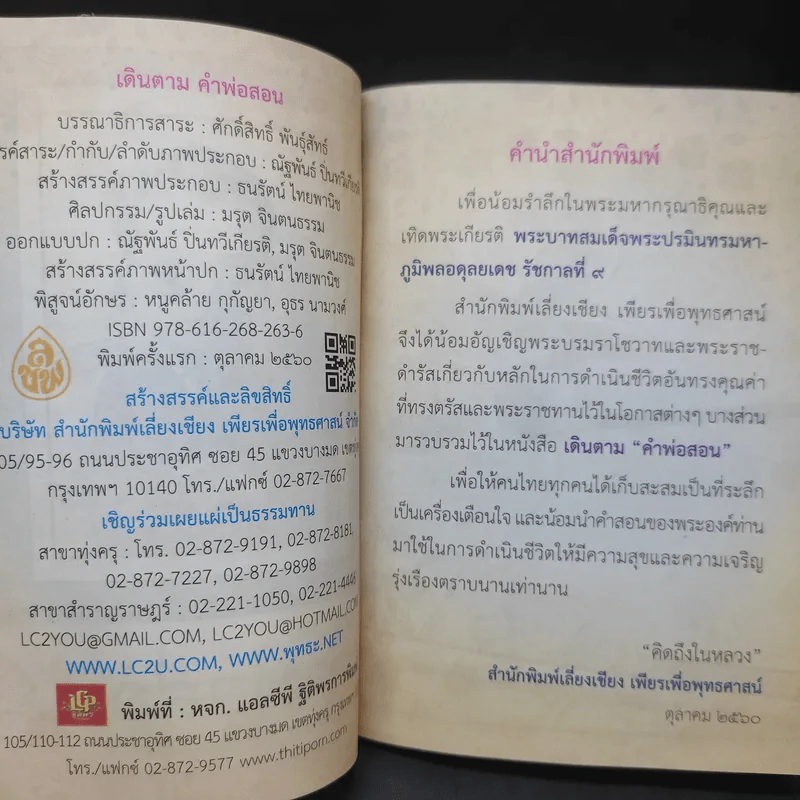 เดินตาม คำพ่อสอน
บรรณาธิการสาระ : ศักดิ์สิทธิ์ พันธุ์สัทธ์
รค์สาระ/กำกับ/ลำดับภาพประกอบ : ณัฐพันธ์ ปิ่นทวีเกียรติ
สร้างสรรค์ภาพประกอบ : ธนรัตน์ ไทยพานิช
ศิลปกรรม/รูปเล่ม : มรุต จินตนธรรม
ออกแบบปก : ณัฐพันธ์ ปิ่นทวีเกียรติ, มรุต จินตนธรรม
สร้างสรรค์ภาพหน้าปก : ธนรัตน์ ไทยพานิช
พิสูจน์อักษร : หนูคล้าย กุกัญยา, อุธร นามวงศ์
ISBN 978-616-268-263-6
พิมพ์ครั้งแรก : ตุลาคม ๒๕๖๐
สร้างสรรค์และลิขสิทธิ์
บริษัท สำนักพิมพ์เลี่ยงเชียง เพียรเพื่อพุทธศาสน์ จำกัด
05/95-96 ถนนประชาอุทิศ ซอย 45 แขวงบางมด
กรุงเทพฯ 10140 โทร./แฟกซ์ 02-872-7667
เชิญร่วมเผยแผ่เป็นธรรมทาน
สาขาทุ่งครุ : โทร. 02-872-9191, 02-872-8181,
02-872-7227, 02-872-9898
สาขาสำราญราษฎร์ : 02-221-1050, 02-221-4446
LC2YOU@GMAIL.COM, LC2YOU@HOTMAIL.COM
WWW.LC2U.COM, WWW.พุทธะ.NET
LCP
พิมพ์ที่ : หจก. แอลซีพี ฐิติพรการพิมพ์
105/110-112 ถนนประชาอุทิศ ซอย 45 แขวงบางมด เขตทุ่งครุ กรุงเทพฯ
โทร./แฟกซ์ 02-872-9577 www.thitiporn.com
คำนำสำนักพิมพ์
เพื่อน้อมรำลึกในพระมหากรุณาธิคุณและ
เทิดพระเกียรติ พระบาทสมเด็จพระปรมินทรมหา-
ภูมิพลอดุลยเดช รัชกาลที่ ๙
สำนักพิมพ์เลี่ยงเชียง เพียรเพื่อพุทธศาสน์
จึงได้น้อมอัญเชิญพระบรมราโชวาทและพระราช-
ดำรัสเกี่ยวกับหลักในการดำเนินชีวิตอันทรงคุณค่า
ที่ทรงตรัสและพระราชทานไว้ในโอกาสต่างๆ บางส่วน
มารวบรวมไว้ในหนังสือ เดินตาม “คำพ่อสอน”
เพื่อให้คนไทยทุกคนได้เก็บสะสมเป็นที่ระลึก
เป็นเครื่องเตือนใจ และน้อมนำคำสอนของพระองค์ท่าน
มาใช้ในการดำเนินชีวิตให้มีความสุขและความเจริญ
รุ่งเรืองตราบนานเท่านาน
“คิดถึงในหลวง”
สำนักพิมพ์เลี่ยงเชียง เพียรเพื่อพุทธศาสน์
ตุลาคม ๒๕๖๐